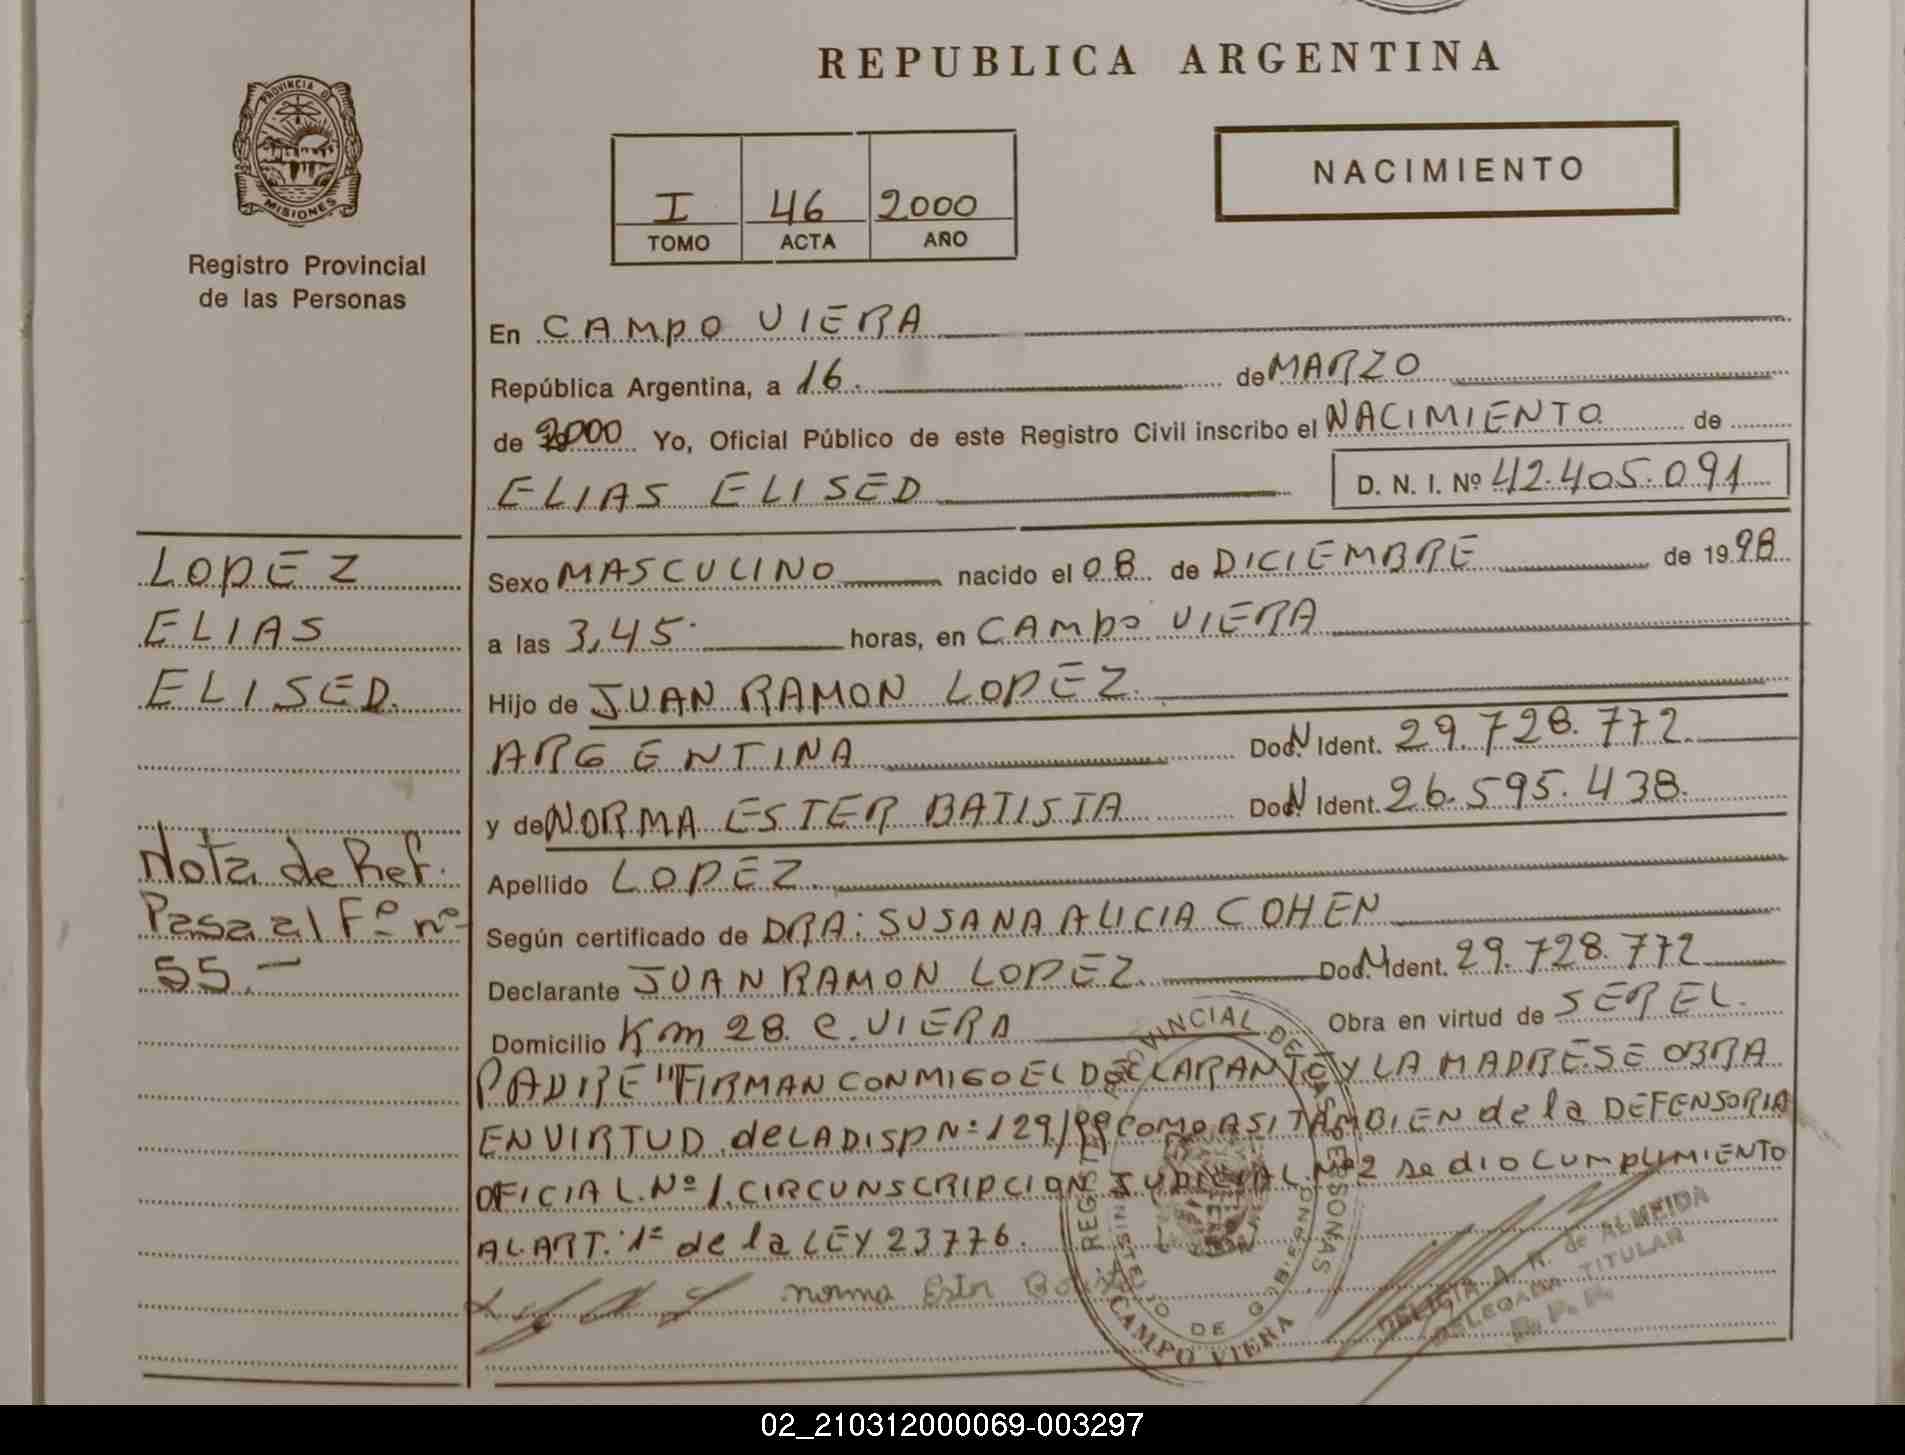 REPUBLICA ARGENTINA
PROVINCIA DE
MISIONES
Registro Provincial
de las Personas
I 46 2000
TOMO ACTA AÑO
NACIMIENTO
En CAMPO VIERA
República Argentina, a 16. de MARZO
de 2000 Yo, Oficial Público de este Registro Civil inscribo el NACIMIENTO de
ELIAS ELISED D. N. I. Nº 42.405.091
LOPEZ
ELIAS
ELISED.
Nota de Ref.
Pasa al Fº nº
55.-
Sexo MASCULINO nacido el 08 de DICIEMBRE de 1998
a las 3,45 horas, en CAMPO VIERA
Hijo de JUAN RAMON LOPEZ.
ARGENTINA Doc. N Ident. 29.728.772
y de NORMA ESTER BATISTA Doc. N Ident. 26.595.438.
Apellido LOPEZ
Según certificado de DRA: SUSANA ALICIA COHEN
Declarante JUAN RAMON LOPEZ. Doc. N Ident. 29.728.772
Domicilio Km 28. C. VIERA Obra en virtud de SER EL
PADRE "FIRMAN CONMIGO EL DECLARANTE Y LA MADRE.SE OBRA
EN VIRTUD de LA DISP Nº 129/99 COMO ASI TAMBIEN de la DEFENSORIA
OFICIAL.Nº 1.CIRCUNSCRIPCION JUDICIAL Nº2 se dio CUMPLIMIENTO
AL ART. 1º de la LEY 23776.
norma Ester
REGISTRO PROVINCIAL DE LAS PERSONAS
MINISTERIO DE GOBIERNO
CAMPO VIERA
DELICIA A. R. de ALMEIDA
DELEGADA TITULAR
R. P. P.
02_210312000069-003297